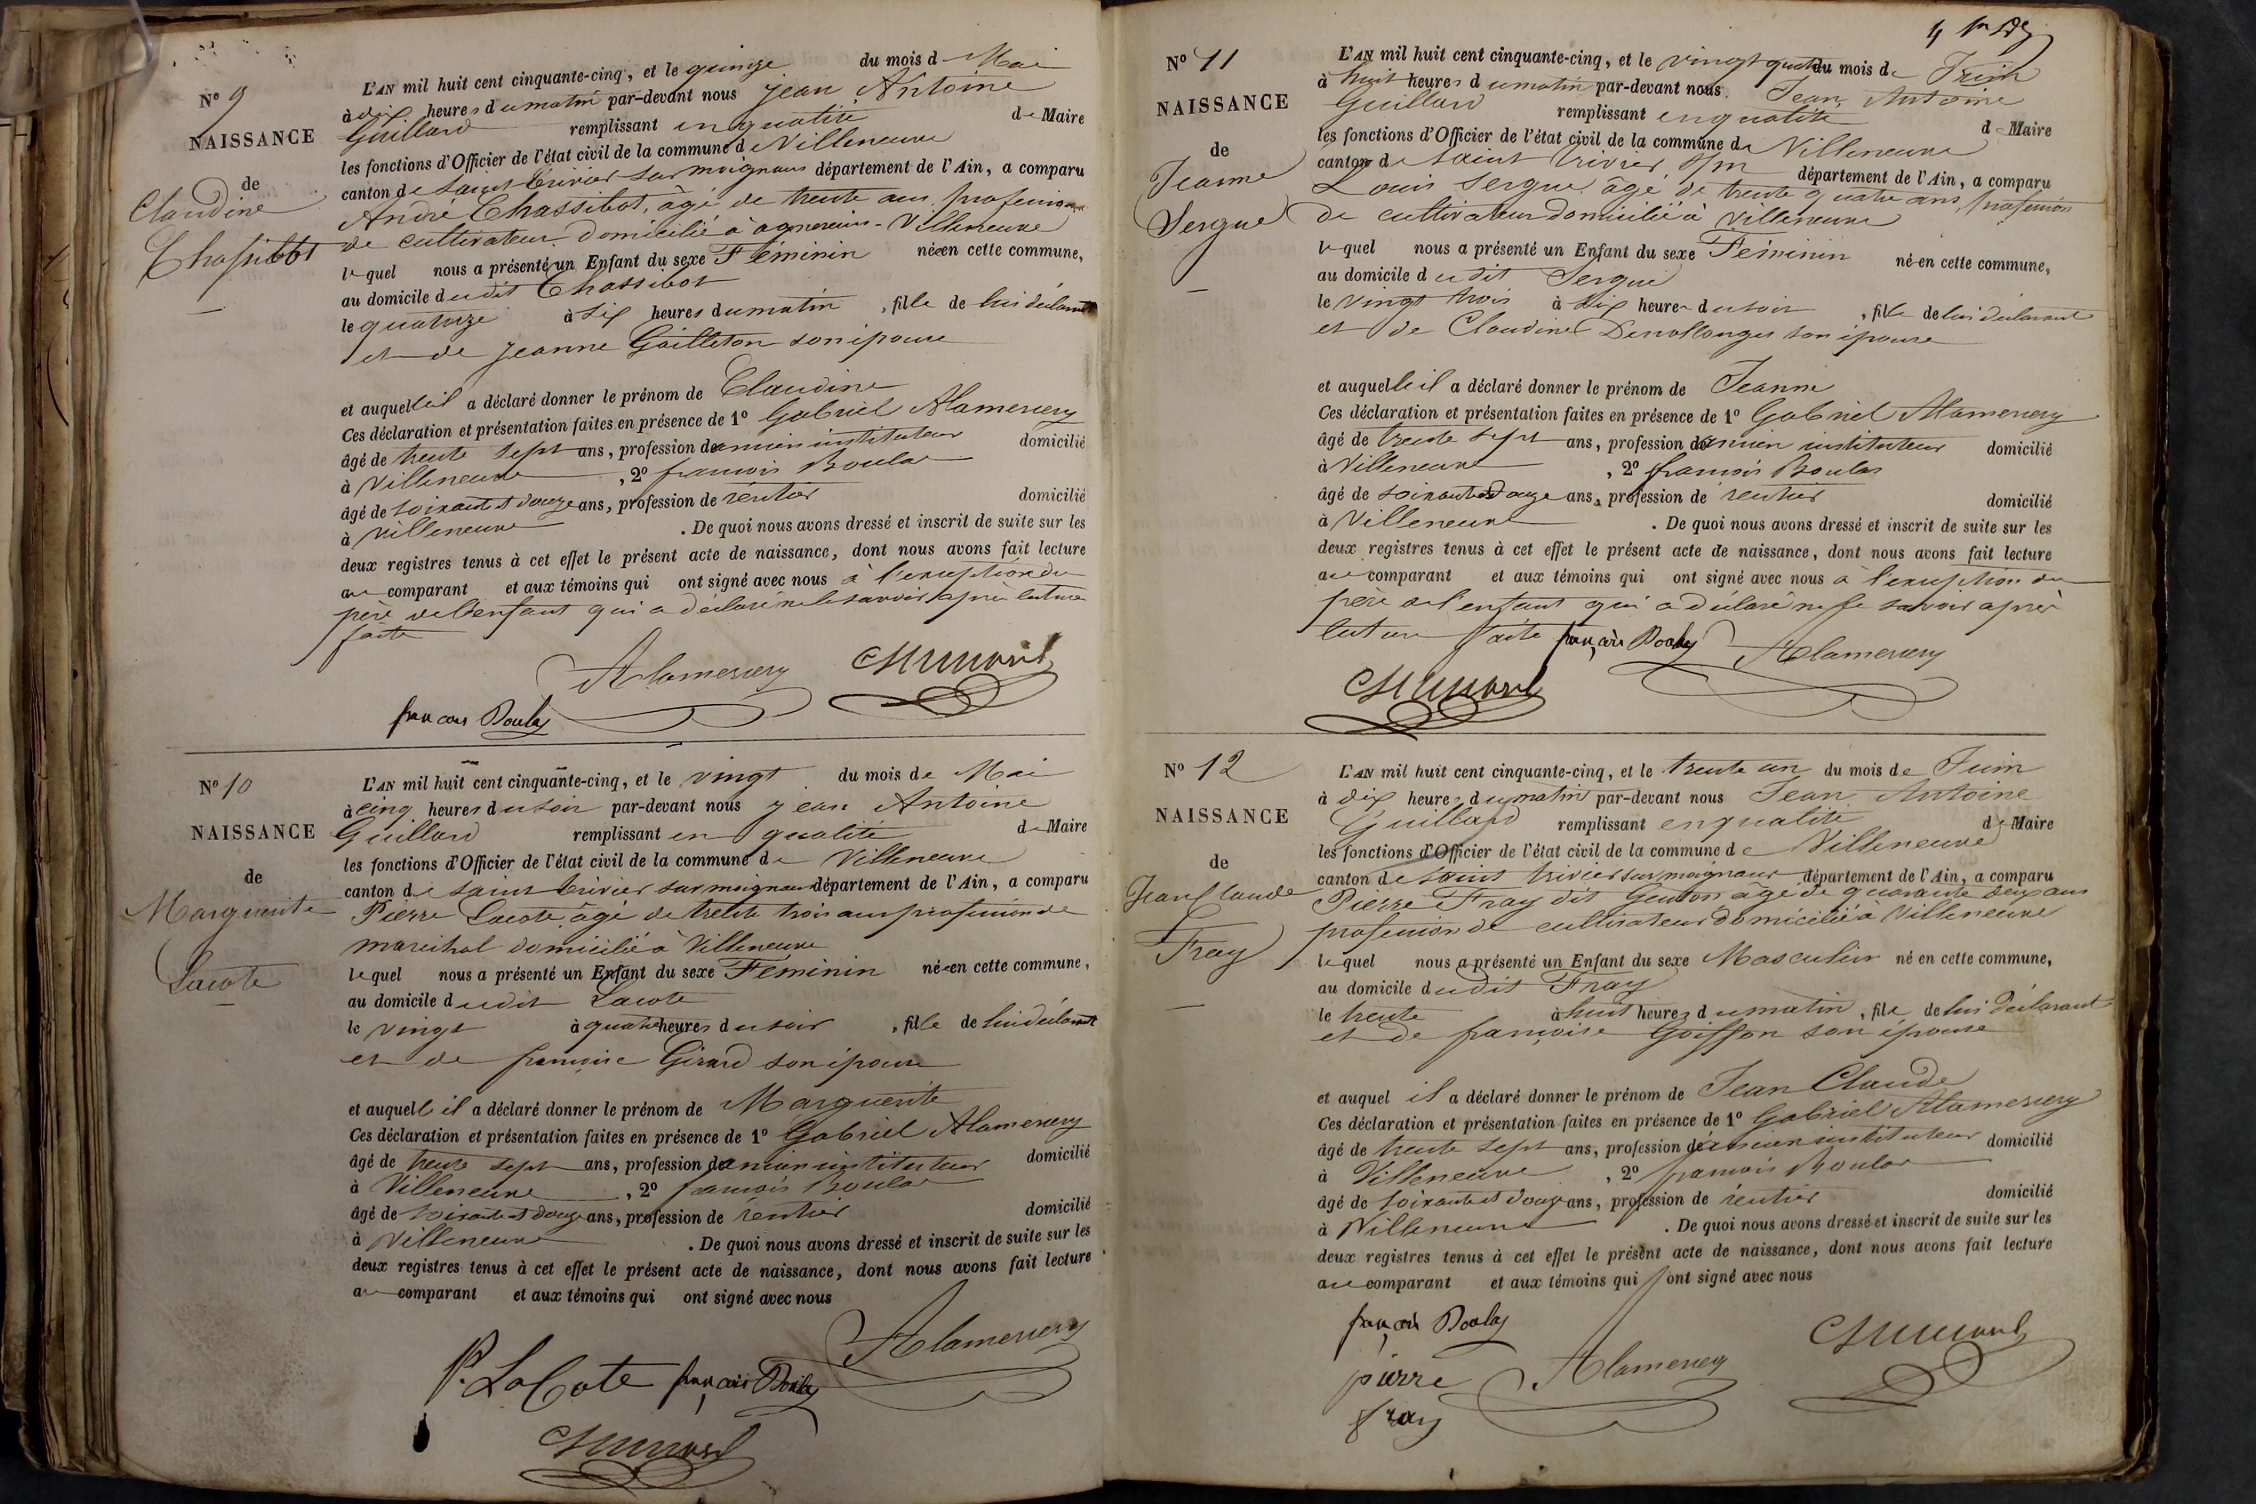 Nº 9
NAISSANCE
de
Claudine
Chassibot
L'AN mil huit cent cinquante-cinq, et le quinze du mois d Mai
à dix heures du matin par-devant nous Jean Antoine
Guillard remplissant en qualité de Maire
les fonctions d'Officier de l'état civil de la commune de Villeneuve
canton de Saint Trivier sur moignans département de l'Ain, a comparu
André Chassibot, âgé de trente ans profession
de cultivateur domicilié à agnereins-Villeneuve
lequel nous a présenté un Enfant du sexe Féminin née en cette commune,
au domicile dudit Chassibot
le quatorze à six heures du matin, fille de lui déclarant
et de Jeanne Gailleton son épouse
et auquelle il a déclaré donner le prénom de Claudine
Ces déclaration et présentation faites en présence de 1º Gabriel Alamercery
âgé de trente sept ans, profession d'ancien instituteur domicilié
à Villeneuve, 2º francois Boulas
âgé de soixante et douze ans, profession de rentier domicilié
à Villeneuve. De quoi nous avons dressé et inscrit de suite sur les
deux registres tenus à cet effet le présent acte de naissance, dont nous avons fait lecture
au comparant et aux témoins qui ont signé avec nous à l'exception du
père de l'enfant qui a déclaré ne le savoir après lecture
faite
Alamercery
francois Boulas
Nº 10
NAISSANCE
de
Marguerite
Lacote
L'AN mil huit cent cinquante-cinq, et le vingt du mois de Mai
à cinq heures du soir par-devant nous Jean Antoine
Guillard remplissant en qualité de Maire
les fonctions d'Officier de l'état civil de la commune de Villeneuve
canton de Saint Trivier sur moignans département de l'Ain, a comparu
Pierre Lacote âgé de trente trois ans profession de
maréchal domicilié à Villeneuve
lequel nous a présenté un Enfant du sexe Féminin née en cette commune,
au domicile dudit Lacote
le vingt à quatre heures du soir, fille de lui déclarant
et de françoise Girard son épouse
et auquelle il a déclaré donner le prénom de Marguerite
Ces déclaration et présentation faites en présence de 1º Gabriel Alamercery
âgé de trente sept ans, profession d'ancien instituteur domicilié
à Villeneuve, 2º francois Boulas
âgé de soixante et douze ans, profession de rentier domicilié
à Villeneuve. De quoi nous avons dressé et inscrit de suite sur les
deux registres tenus à cet effet le présent acte de naissance, dont nous avons fait lecture
au comparant et aux témoins qui ont signé avec nous
Alamercery
P. LaCote françois Boulas
4
Nº 11
NAISSANCE
de
Jeanne
Sergue
L'AN mil huit cent cinquante-cinq, et le vingt quatre du mois de Juin
à huit heures du matin par-devant nous Jean Antoine
Guillard remplissant en qualité de Maire
les fonctions d'Officier de l'état civil de la commune de Villeneuve
canton de Saint Trivier s/m département de l'Ain, a comparu
Louis Sergue âgé de trente quatre ans, profession
de cultivateur domicilié à Villeneuve
lequel nous a présenté un Enfant du sexe Féminin née en cette commune,
au domicile dudit Sergue
le vingt trois à dix heures du soir, fille de lui déclarant
et de Claudine son épouse
et auquelle il a déclaré donner le prénom de Jeanne
Ces déclaration et présentation faites en présence de 1º Gabriel Alamercery
âgé de trente sept ans, profession d'ancien instituteur domicilié
à Villeneuve, 2º francois Boulas
âgé de soixante et douze ans, profession de rentier domicilié
à Villeneuve. De quoi nous avons dressé et inscrit de suite sur les
deux registres tenus à cet effet le présent acte de naissance, dont nous avons fait lecture
au comparant et aux témoins qui ont signé avec nous à l'exception du
père de l'enfant qui a déclaré ne le savoir après
lecture faite françois Boulas Alamercery
Nº 12
NAISSANCE
de
Jean Claude
Fray
L'AN mil huit cent cinquante-cinq, et le trente un du mois de Juin
à dix heures du matin par-devant nous Jean Antoine
Guillard remplissant en qualité de Maire
les fonctions d'Officier de l'état civil de la commune de Villeneuve
canton de Saint Trivier sur moignans département de l'Ain, a comparu
Pierre Fray dit Genton âgé de quarante deux ans
profession de cultivateur domicilié à Villeneuve
lequel nous a présenté un Enfant du sexe Masculin né en cette commune,
au domicile dudit Fray
le trente à huit heures du matin, fils de lui déclarant
et de françoise Goiffon son épouse
et auquel il a déclaré donner le prénom de Jean Claude
Ces déclaration et présentation faites en présence de 1º Gabriel Alamercery
âgé de trente sept ans, profession d'ancien instituteur domicilié
à Villeneuve, 2º francois Boulas
âgé de soixante et douze ans, profession de rentier domicilié
à Villeneuve. De quoi nous avons dressé et inscrit de suite sur les
deux registres tenus à cet effet le présent acte de naissance, dont nous avons fait lecture
au comparant et aux témoins qui ont signé avec nous
françois Boulas
pierre Alamercery
fray